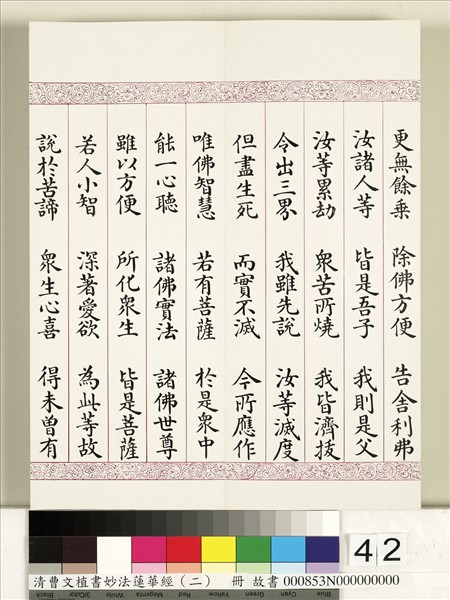 更無餘乘 除佛方便 告舍利弗
汝諸人等 皆是吾子 我則是父
汝等累劫 衆苦所燒 我皆濟拔
令出三界 我雖先說 汝等滅度
但盡生死 而實不滅 今所應作
唯佛智慧 若有菩薩 於是衆中
能一心聽 諸佛實法 諸佛世尊
雖以方便 所化衆生 皆是菩薩
若人小智 深著愛欲 為此等故
說於苦諦 衆生心喜 得未曾有
42
Black 3/Color White Magenta Red Yellow Green Cyan Blue
清曹文植書妙法蓮華經（二） 冊 故書 000853N000000000